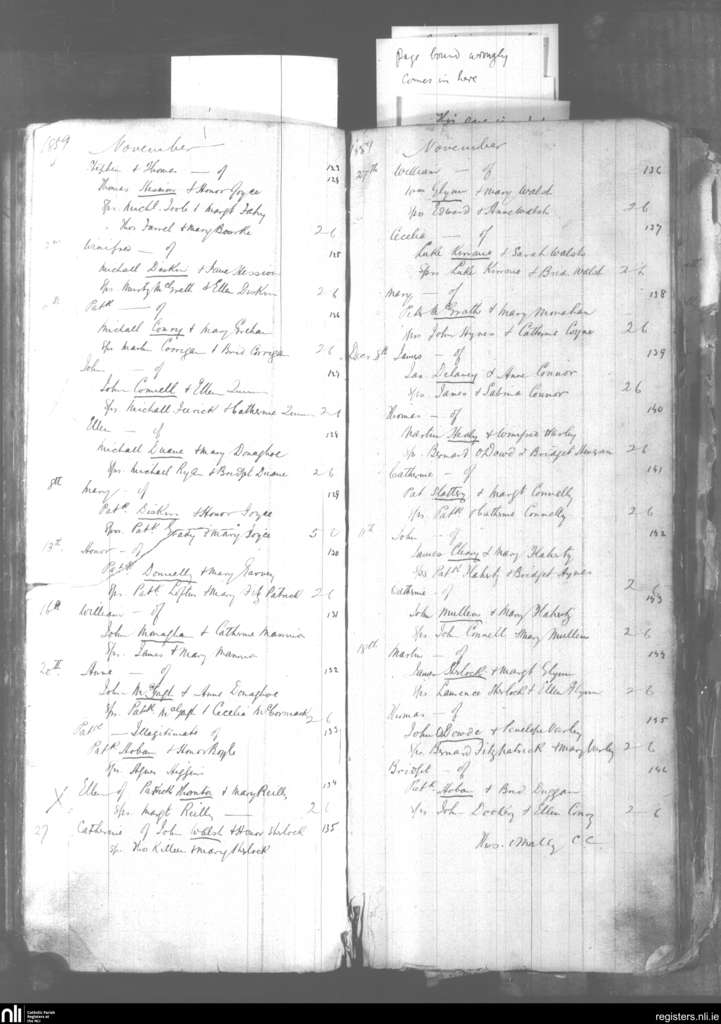 page bound wrongly
comes in here
1859 November
Stephen & Thomas — of 123
Thomas Hession & Honor Joyce 124
Thos Farrel & Mary Bourke 2-6
Winifred — of 125
Michael Diskin & Jane Hession
Sps Murty McGrath & Ellen Diskin 2 6
Patk — of 126
Michael Conroy & Mary
Sps Martin Corrigan & Brid Corrigan 2 6
John — of 127
John Connell & Ellen Quinn
Sps Michall & Catherine Quinn 2-6
Ellen — of 128
Michael Duane & Mary Donaghoe
Sps Michael Ryan & Bridget Duane 2 6
8th Mary of 129
Patk Diskin & Honor Joyce
Spss Patk & Mary Joyce 5 6
13th Honor — of 130
Patk Donnelly & Mary Garvey
Sps Patk Loftus & Mary Fitz Patrick 2 6
16th William — of 131
John Monaghan & Catherine Mannion
Sps James & Mary Mannion
20th Anne — of 132
John McHugh & Anne Donaghoe
Sps Patk McHugh & Cecelia McCormack 2 6
Patk — Illegitimate of 133
Patk Hoban & Honor Boyle
Sps Agnes Higgins
X Ellen of Patrick Thornton & Mary Reilly 134
Sps Margt Reilly — 2 6
27 Catherine of John Walsh & Honor Sherlock 135
Sps Thos Killeen & Mary Sherlock
1859 November
27th William — of 136
Wm Glynn & Mary Walsh
Sps Edward & Anne Walsh 2-6
Cecelia — of 137
Luke Kirwane & Sarah Walsh
Spss Luke Kirwane & Brid Walsh 2-6
Mary — of 138
Peter McGrath & Mary Monahan
Sps John Hynes & Catherine Coyne 2 6
Decr 8th James — of 139
Jas Delaney & Anne Connor
Sps James & Sabina Connor 2 6
Thomas — of 140
Martin Healy & Winifred Varley
Sps Bernard O'Dowd & Bridget 2-6
Catherine — of 141
Pat Slattery & Margt Connelly
Sps Patk & Catherine Connelly 2 6
11th John — of 142
James Cleary & Mary Flaherty
Sps Patk Flaherty & Bridget Hynes 2 6
Catherine — of 143
John Mullens & Mary Flaherty
Sps John Connell & Mary Mullens 2-6
18th Martin — of 144
James Sherlock & Margt Glynn
Sps Lawrence Sherlock & Ellen Glynn 2-6
Thomas — of 145
John O'Dowde & Penelope Varley
Sps Bernard Fitzpatrick & Mary Varley 2-6
Bridget of 146
Patk Hoban & Brid Duggan
Sps John Dooley & Ellen Conry 2-6
Thos. O'Malley CC
nli
Catholic Parish
Registers at
the NLI
registers.nli.ie